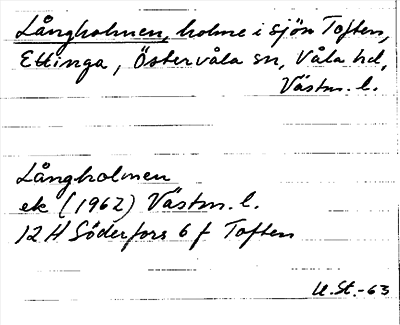 Långholmen, holme i sjön Toften,
Ettinga, Östervåla sn, Våla hd,
Västm. l.
Långholmen
ek (1962) Västm. l.
12 H Söderfors 6 f Toften
U.St.-63